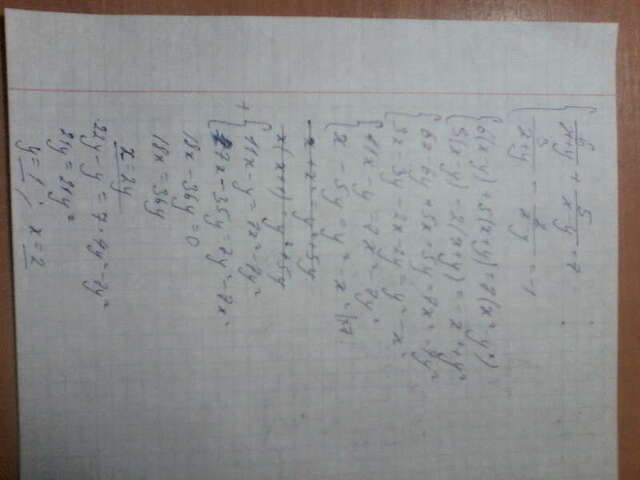 { 6/(x+y) + 5/(x-y) = 7
{ 3/(x+y) - 2/(x-y) = -1
{ 6(x-y)+5(x+y)=7(x²-y²)
{ 3(x-y)-2(x+y)=-x²+y²
{ 6x-6y+5x+5y=7x²-7y²
{ 3x-3y-2x-2y=y²-x²
{ 11x-y=7x²-7y²
{ x-5y=y²-x² |·7
+ { 11x-y=7x²-7y²
{ 7x-35y=7y²-7x²
18x-36y=0
18x=36y
x=2y
22y-y=7·4y²-7y²
21y=21y²
y=1; x=2